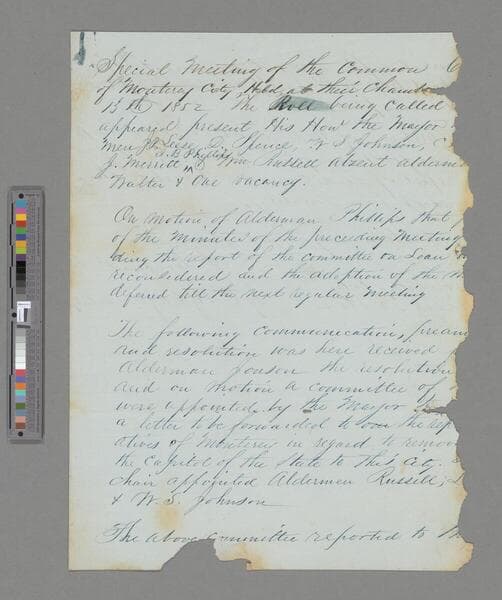 Special Meeting of the Common C
of Monterey City, Held at their Chamber
13th 1852 The Roll being Called
appeared present His Honr the Mayor
men Jas Leese, D. Spence, W S Johnson, C
J. B Phillips
J. Merritt & Wm Russell absent alderm
Walter & One vacancy.
On Motion of Alderman Phillips that
of the Minutes of the preceeding Meeting
ding the report of the committee on Loan
reconsidered and the adoption of the
deferred till the next regular meeting
The following Communication, pream
and resolution was here received f
Alderman Jonson the resolution
and on motion a committee of
were appointed by the Mayor
a letter to be forwarded to our the rep
atives of Monterei in regard to remov
the Capitol of the State to this City.
Chair appointed Aldermen Russell,
& W. S. Johnson
The above committee reported to th